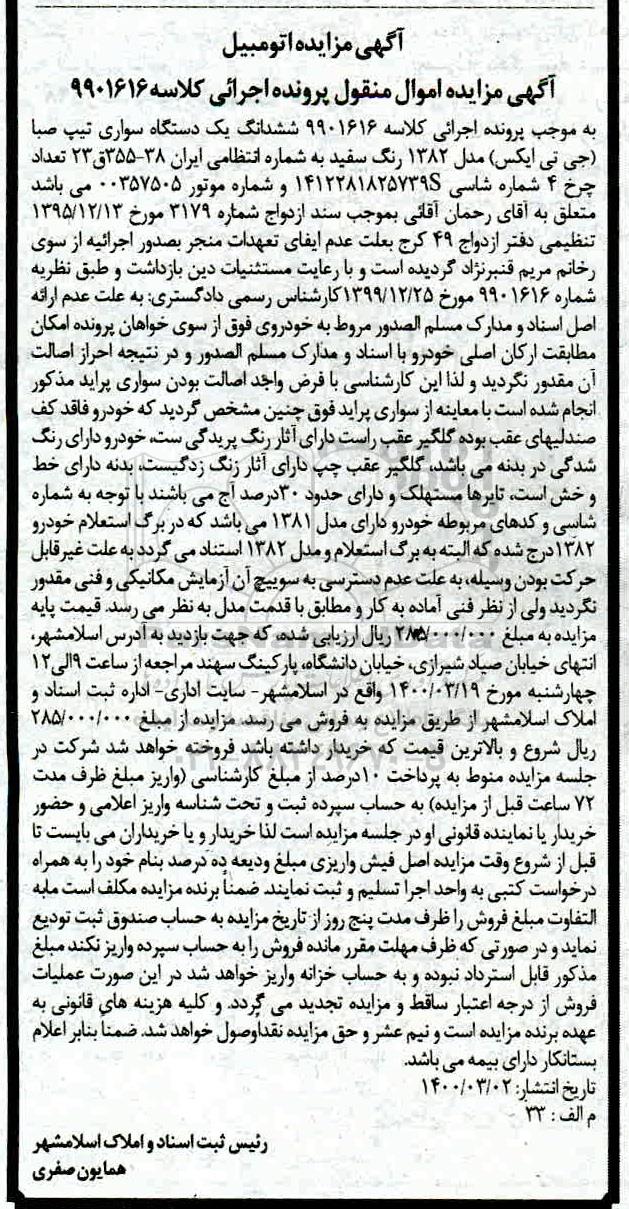 آگهی مزایده اتومبیل
آگهی مزایده اموال منقول پرونده اجرائی کلاسه ۹۹۰۱۶۱۶
به موجب پرونده اجرائی کلاسه ۹۹۰۱۶۱۶ ششدانگ یک دستگاه سواری تیپ صبا
(جی تی ایکس) مدل ۱۳۸۲ رنگ سفید به شماره انتظامی ایران ۳۸-۳۵۵ق۲۳ تعداد
چرخ ۴ شماره شاسی ۱۴۱۲۲۸۱۸۲۵۷۳۹S و شماره موتور ۰۰۳۵۷۵۰۵ می باشد
متعلق به آقای رحمان آقائی بموجب سند ازدواج شماره ۳۱۷۹ مورخ ۱۳۹۵/۱۲/۱۳
تنظیمی دفتر ازدواج ۴۹ کرج بعلت عدم ایفای تعهدات منجر بصدور اجرائیه از سوی
رخانم مریم قنبرنژاد گردیده است و با رعایت مستثنیات دین بازداشت و طبق نظریه
شماره ۹۹۰۱۶۱۶ مورخ ۱۳۹۹/۱۲/۲۵کارشناس رسمی دادگستری: به علت عدم ارائه
اصل اسناد و مدارک مسلم الصدور مروط به خودروی فوق از سوی خواهان پرونده امکان
مطابقت ارکان اصلی خودرو با اسناد و مدارک مسلم الصدور و در نتیجه احراز اصالت
آن مقدور نگردید و لذا این کارشناسی با فرض واجد اصالت بودن سواری پراید مذکور
انجام شده است با معاینه از سواری پراید فوق چنین مشخص گردید که خودرو فاقد کف
صندلیهای عقب بوده گلگیر عقب راست دارای آثار رنگ پریدگی ست، خودرو دارای رنگ
شدگی در بدنه می باشد، گلگیر عقب چپ دارای آثار زنگ زدگیست، بدنه دارای خط
و خش است، تایرها مستهلک و دارای حدود ۳۰درصد آج می باشند با توجه به شماره
شاسی و کدهای مربوطه خودرو دارای مدل ۱۳۸۱ می باشد که در برگ استعلام خودرو
۱۳۸۲درج شده که البته به برگ استعلام و مدل ۱۳۸۲ استناد می گردد به علت غیرقابل
حرکت بودن وسیله، به علت عدم دسترسی به سوییچ آن آزمایش مکانیکی و فنی مقدور
نگردید ولی از نظر فنی آماده به کار و مطابق با قدمت مدل به نظر می رسد. قیمت پایه
مزایده به مبلغ ۲۸۵/۰۰۰/۰۰۰ ریال ارزیابی شده، که جهت بازدید به آدرس اسلامشهر،
انتهای خیابان صیاد شیرازی، خیابان دانشگاه، پارکینگ سهند مراجعه از ساعت ۹الی۱۲
چهارشنبه مورخ ۱۴۰۰/۰۳/۱۹ واقع در اسلامشهر- سایت اداری- اداره ثبت اسناد و
املاک اسلامشهر از طریق مزایده به فروش می رسد. مزایده از مبلغ ۲۸۵/۰۰۰/۰۰۰
ریال شروع و بالاترین قیمت که خریدار داشته باشد فروخته خواهد شد شرکت در
جلسه مزایده منوط به پرداخت ۱۰درصد از مبلغ کارشناسی (واریز مبلغ ظرف مدت
۷۲ ساعت قبل از مزایده) به حساب سپرده ثبت و تحت شناسه واریز اعلامی و حضور
خریدار یا نماینده قانونی او در جلسه مزایده است لذا خریدار و یا خریداران می بایست تا
قبل از شروع وقت مزایده اصل فیش واریزی مبلغ ودیعه ده درصد بنام خود را به همراه
درخواست کتبی به واحد اجرا تسلیم و ثبت نمایند. ضمناً برنده مزایده مکلف است مابه
التفاوت مبلغ فروش را ظرف مدت پنج روز از تاریخ مزایده به حساب صندوق ثبت تودیع
نماید و در صورتی که ظرف مهلت مقرر مانده فروش را به حساب سپرده واریز نکند مبلغ
مذکور قابل استرداد نبوده و به حساب خزانه واریز خواهد شد در این صورت عملیات
فروش از درجه اعتبار ساقط و مزایده تجدید می گردد. و کلیه هزینه های قانونی به
عهده برنده مزایده است و نیم عشر و حق مزایده نقداًوصول خواهد شد. ضمناً بنابر اعلام
بستانکار دارای بیمه می باشد.
تاریخ انتشار: ۱۴۰۰/۰۳/۰۲
م الف : ۳۳
رئیس ثبت اسناد و املاک اسلامشهر
همایون صفری